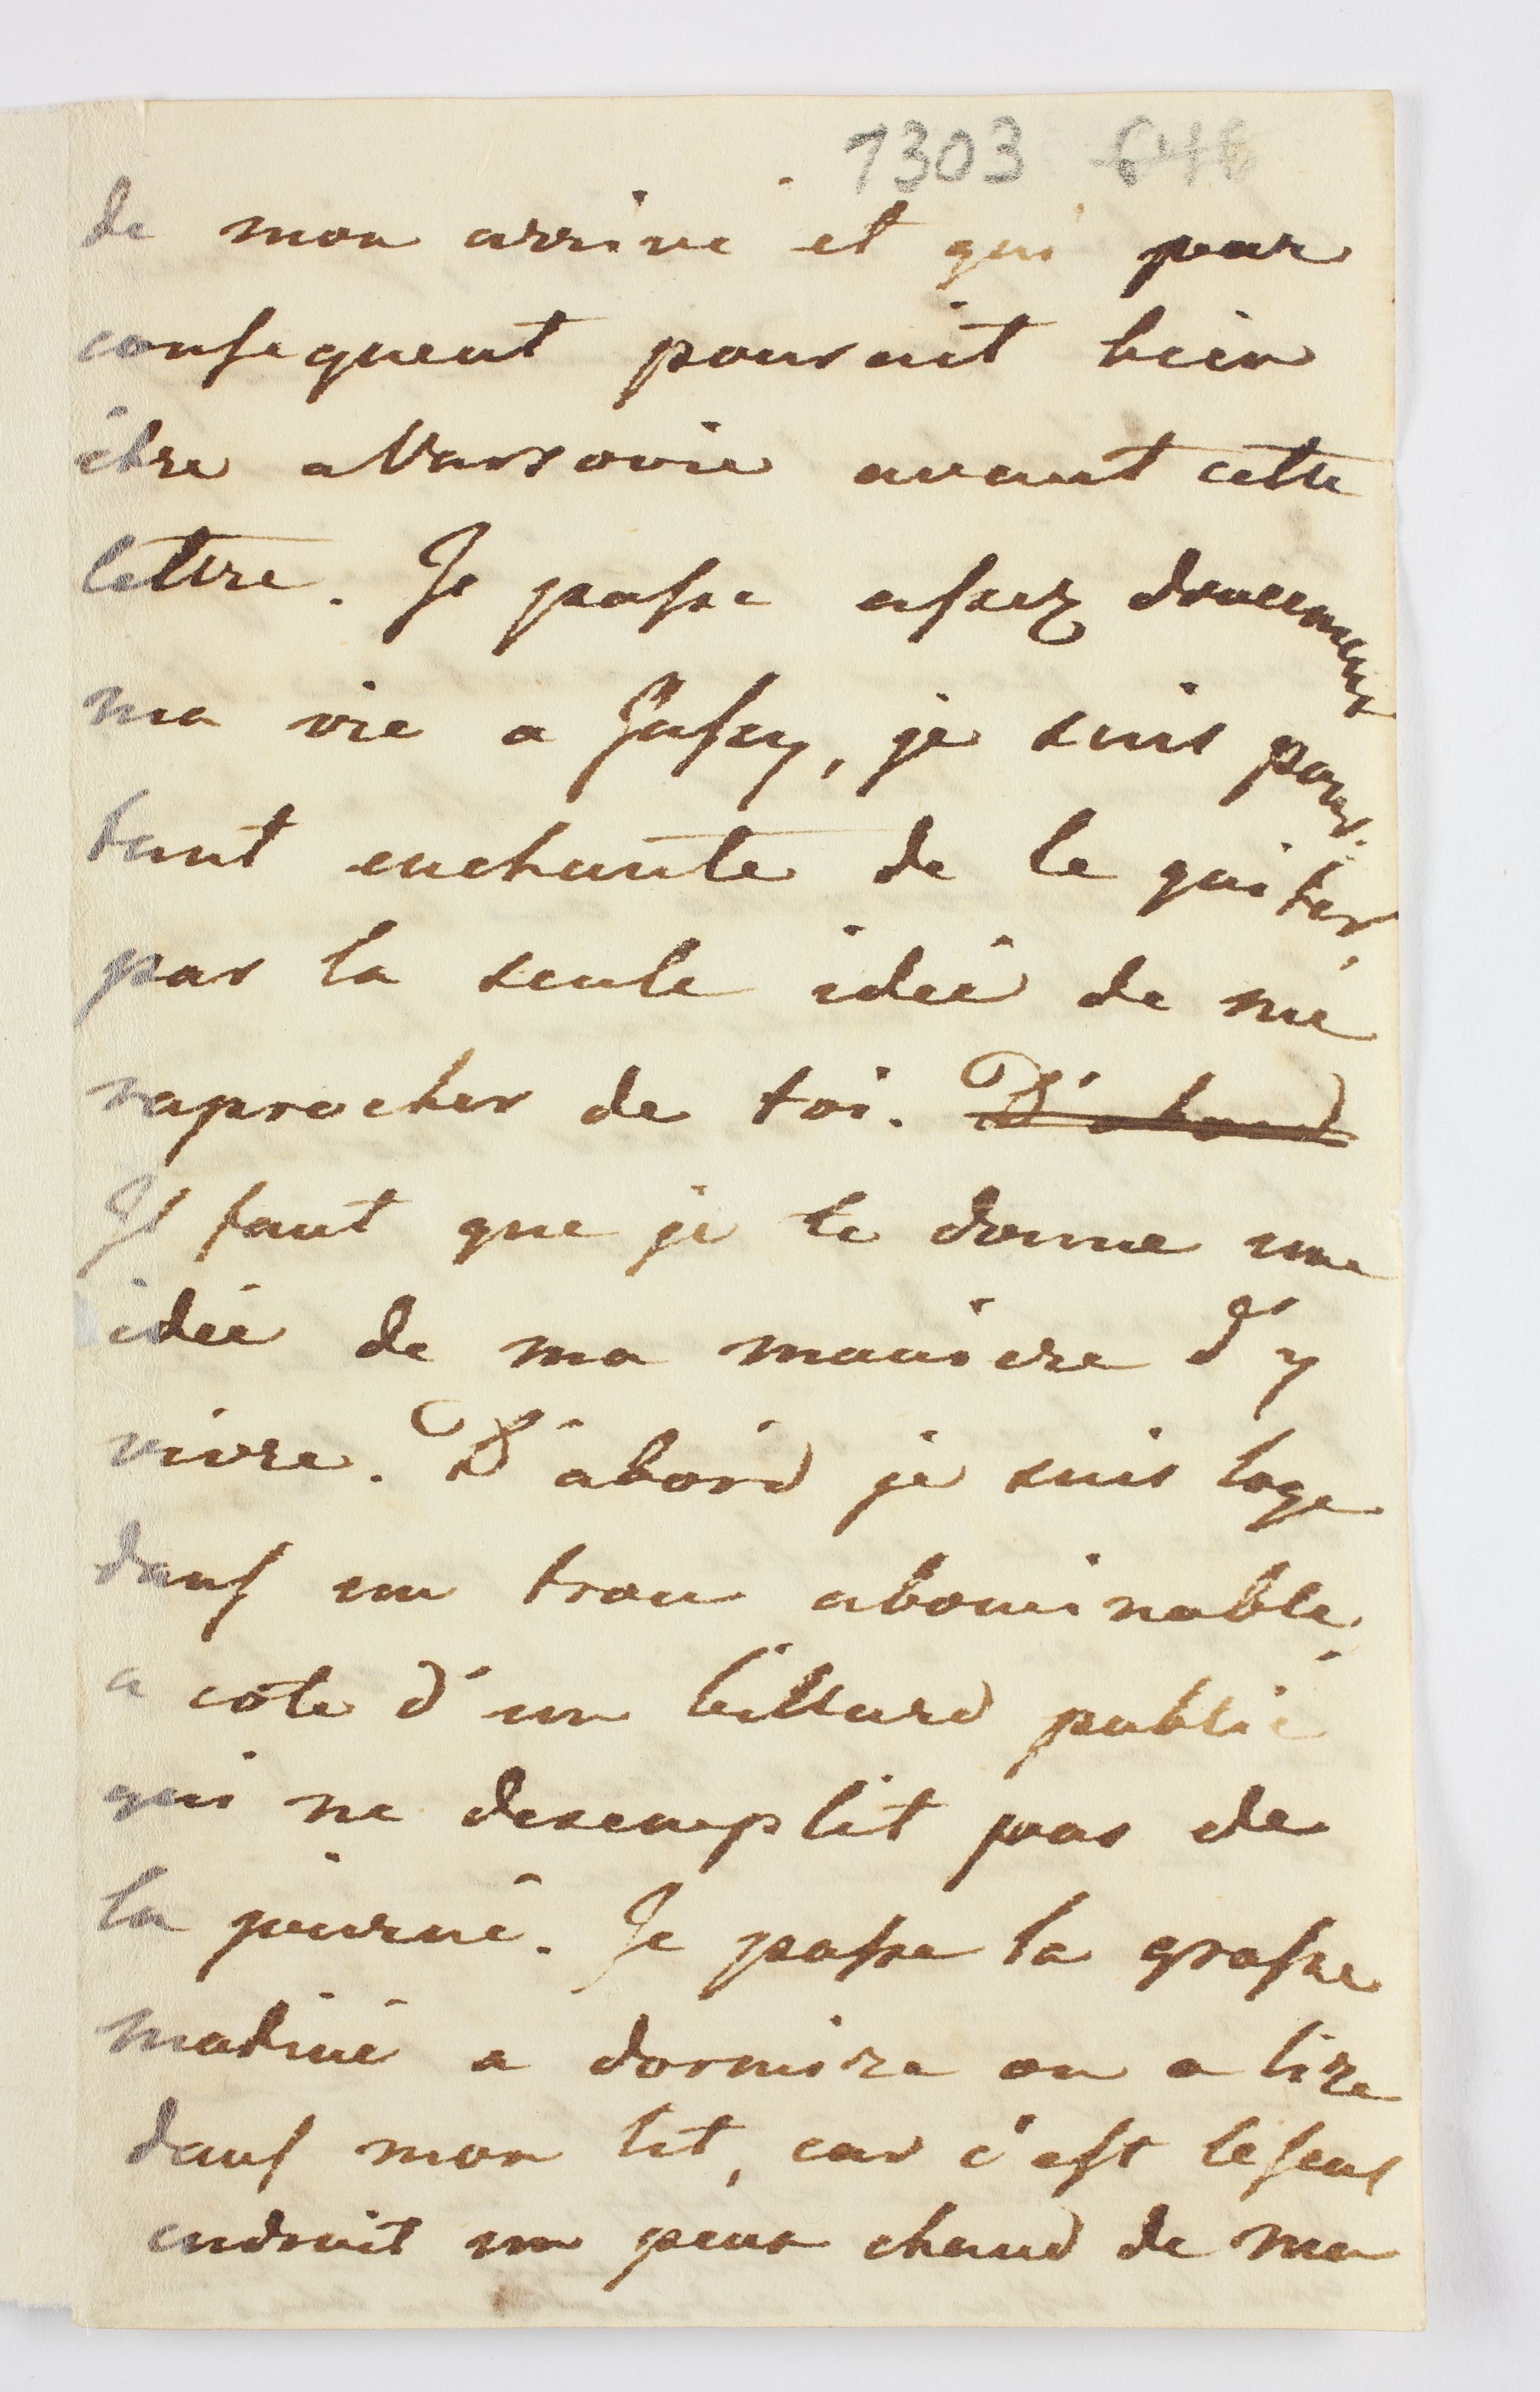 1303 646
de mon arrivé et qui par
consequent pourait bien
être a Varsovie avant cette
lettre. Je passe assez doucement
ma vie a Jassy, je suis pour-
tant enchanté de le quiter,
par la seule idée de me
raprocher de toi. D'abord
Il faut que je te donne une
idée de ma maniere d'y
vivre. D'abord je suis logé
dans un trou abominable,
a coté d'un billard public
qui ne desemplit pas de
la journé. Je passe la grasse
matiné a dormire ou a lire
dans mon lit, car c'est le seul
endroit un peux chaud de ma